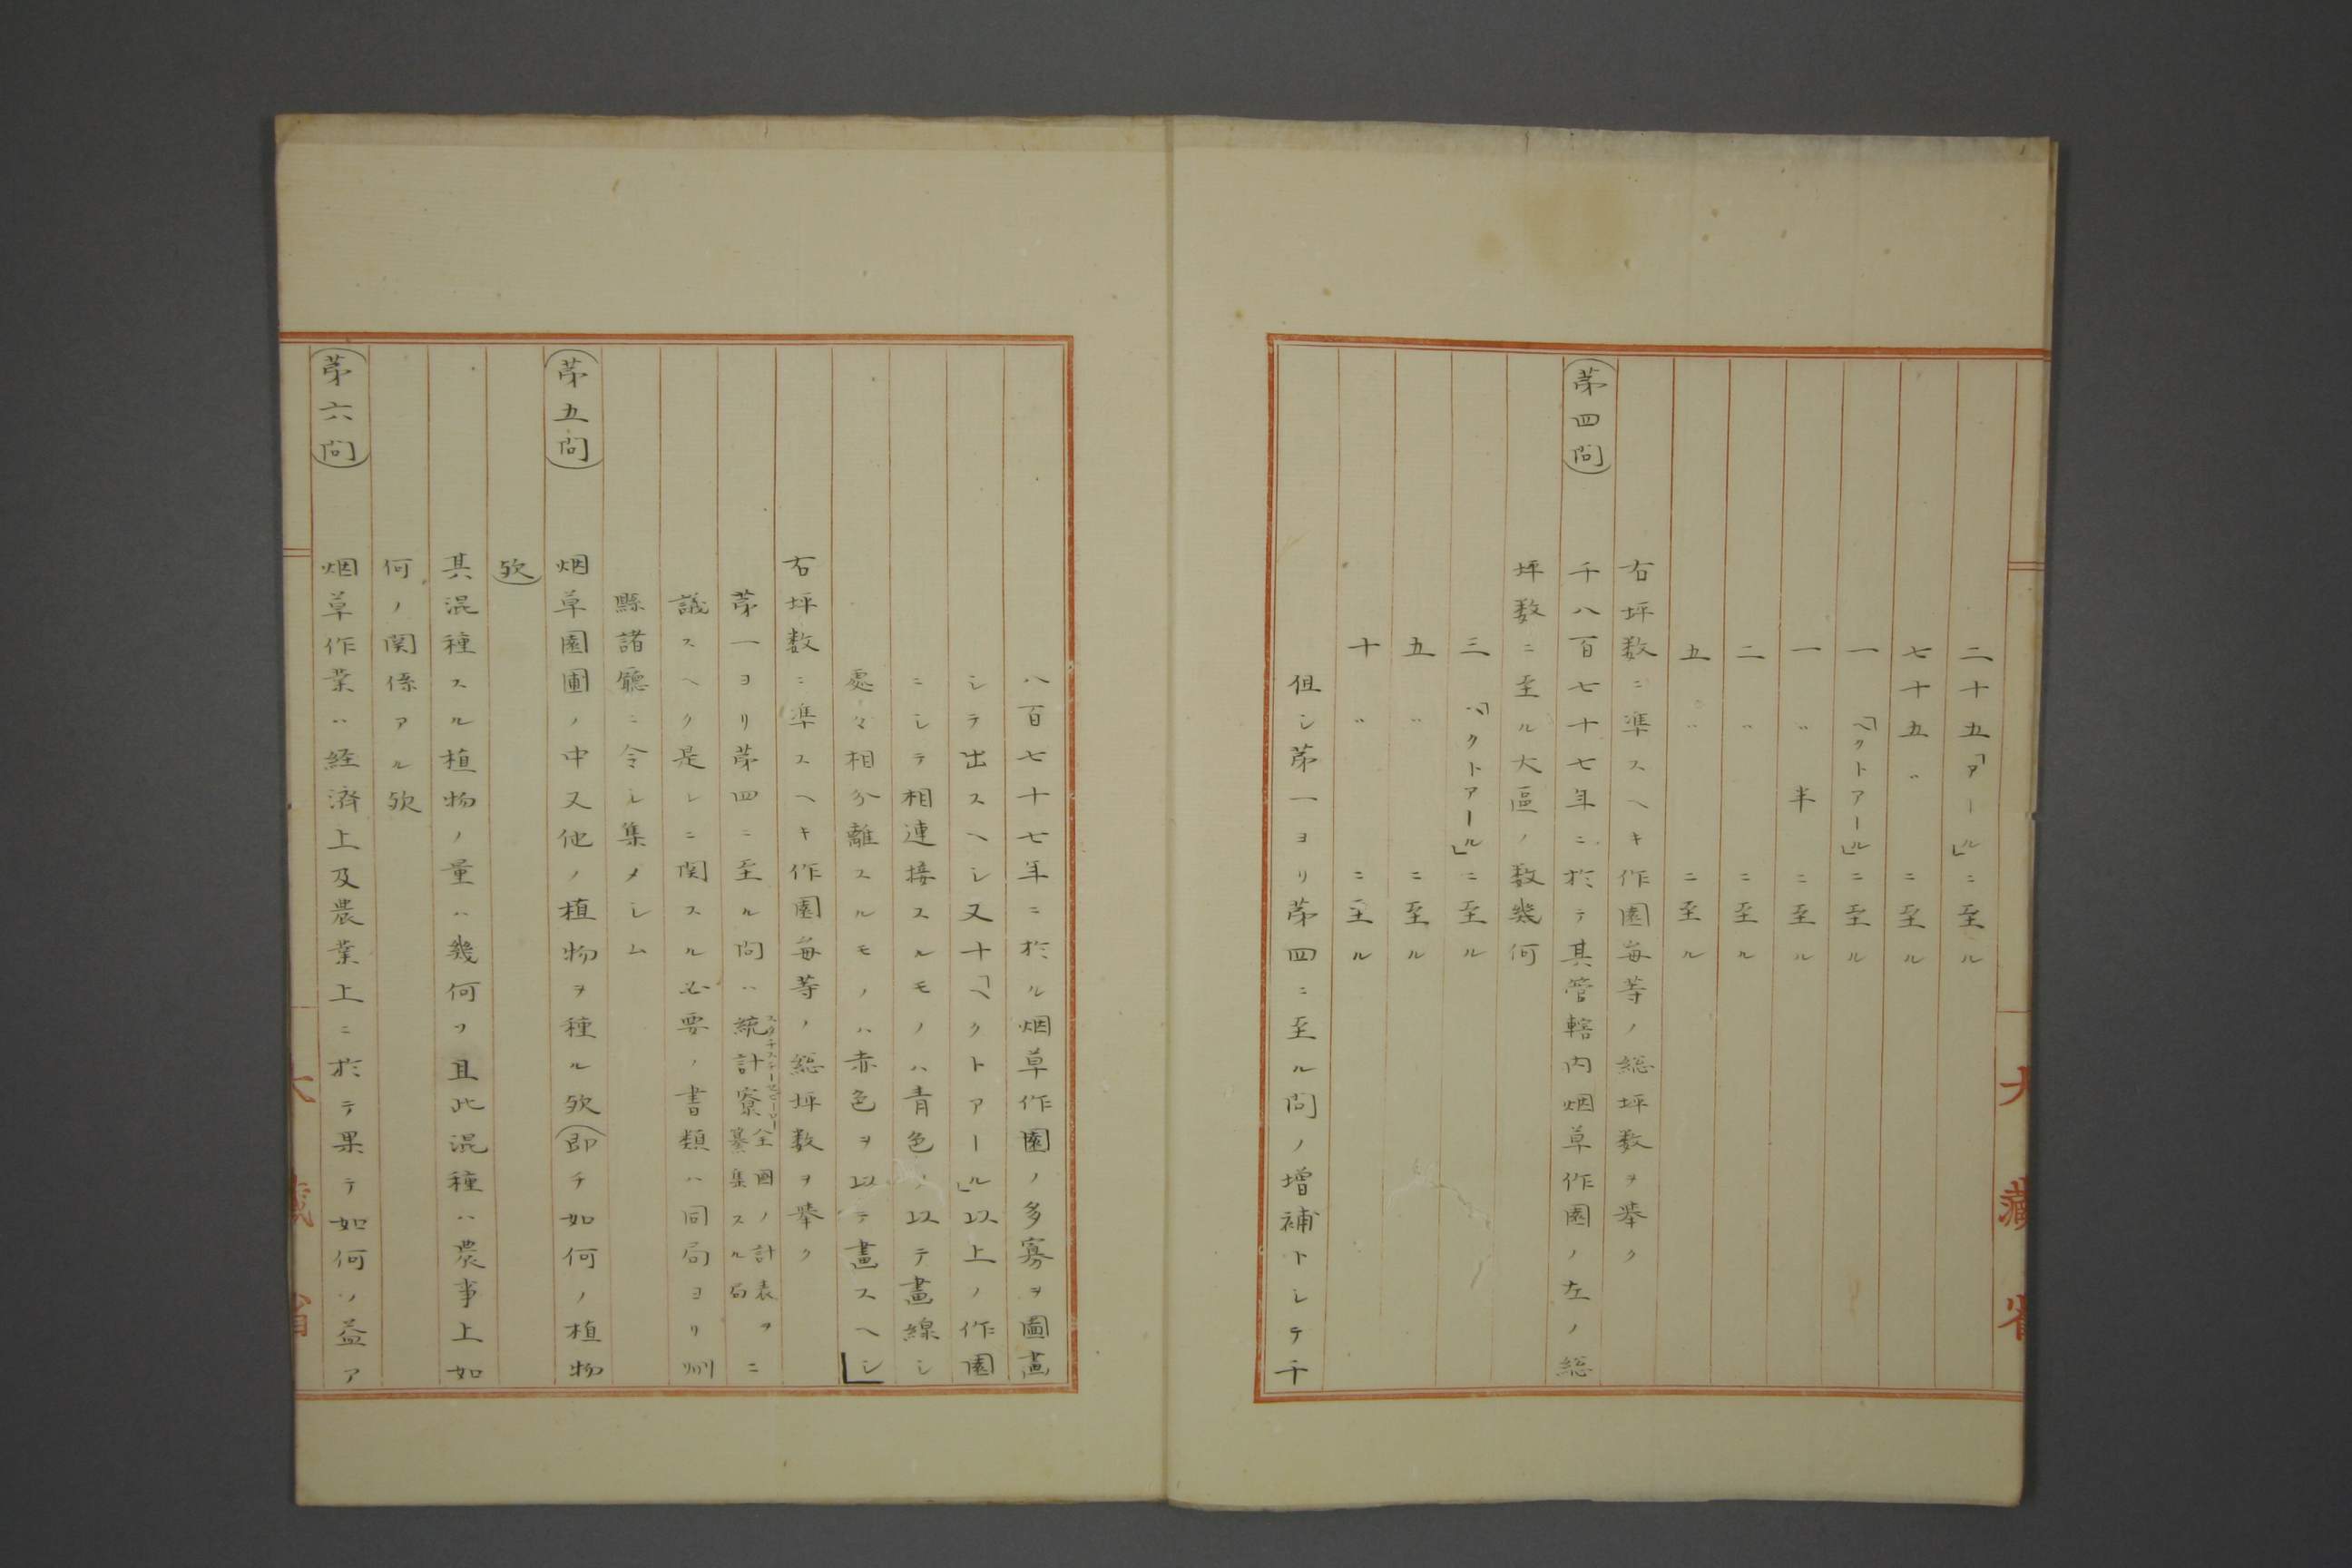 二十五「アール」ニ至ル
七十五〃ニ至ル
一「ヘクトアール」ニ至ル
一〃半ニ至ル
二〃ニ至ル
五〃ニ至ル
右坪数ニ準スヘキ作園毎等ノ総坪数ヲ挙ク
(苐四問)千八百七十七年ニ於テ其管轄内烟草作園ノ左ノ総
坪数ニ至ル大區ノ数幾何
三「ヘクトアール」ニ至ル
五〃ニ至ル
十〃ニ至ル
但シ苐一ヨリ苐四ニ至ル問ノ増補トシテ千
大藏省
八百七十七年ニ於ル烟草作園ノ多寡ヲ圖畫
シテ出スヘシ又十「ヘクトアール」以上ノ作園
ニシテ相連接スルモノハ青色ヲ以テ畫線シ
處々相分離スルモノハ赤色ヲ以テ畫スヘシ」
右坪数ニ準スヘキ作園毎等ノ総坪数ヲ挙ク
苐一ヨリ苐四ニ至ル問ハ統計寮全国ノ計表ヲ纂集スル局ニ
議スヘク是レニ関スル必要ノ書類ハ同局ヨリ州
縣諸廳ニ令シ集メシム
(苐五問)烟草園圃ノ中又他ノ植物ヲ種ル欤(即チ如何ノ植物
欤)
其混種スル植物ノ量ハ幾何ソ且此混種ハ農事上如
何ノ関係アル欤
(苐六問)烟草作業ハ経済上及農業上ニ於テ果テ如何ソ益ア
大藏省